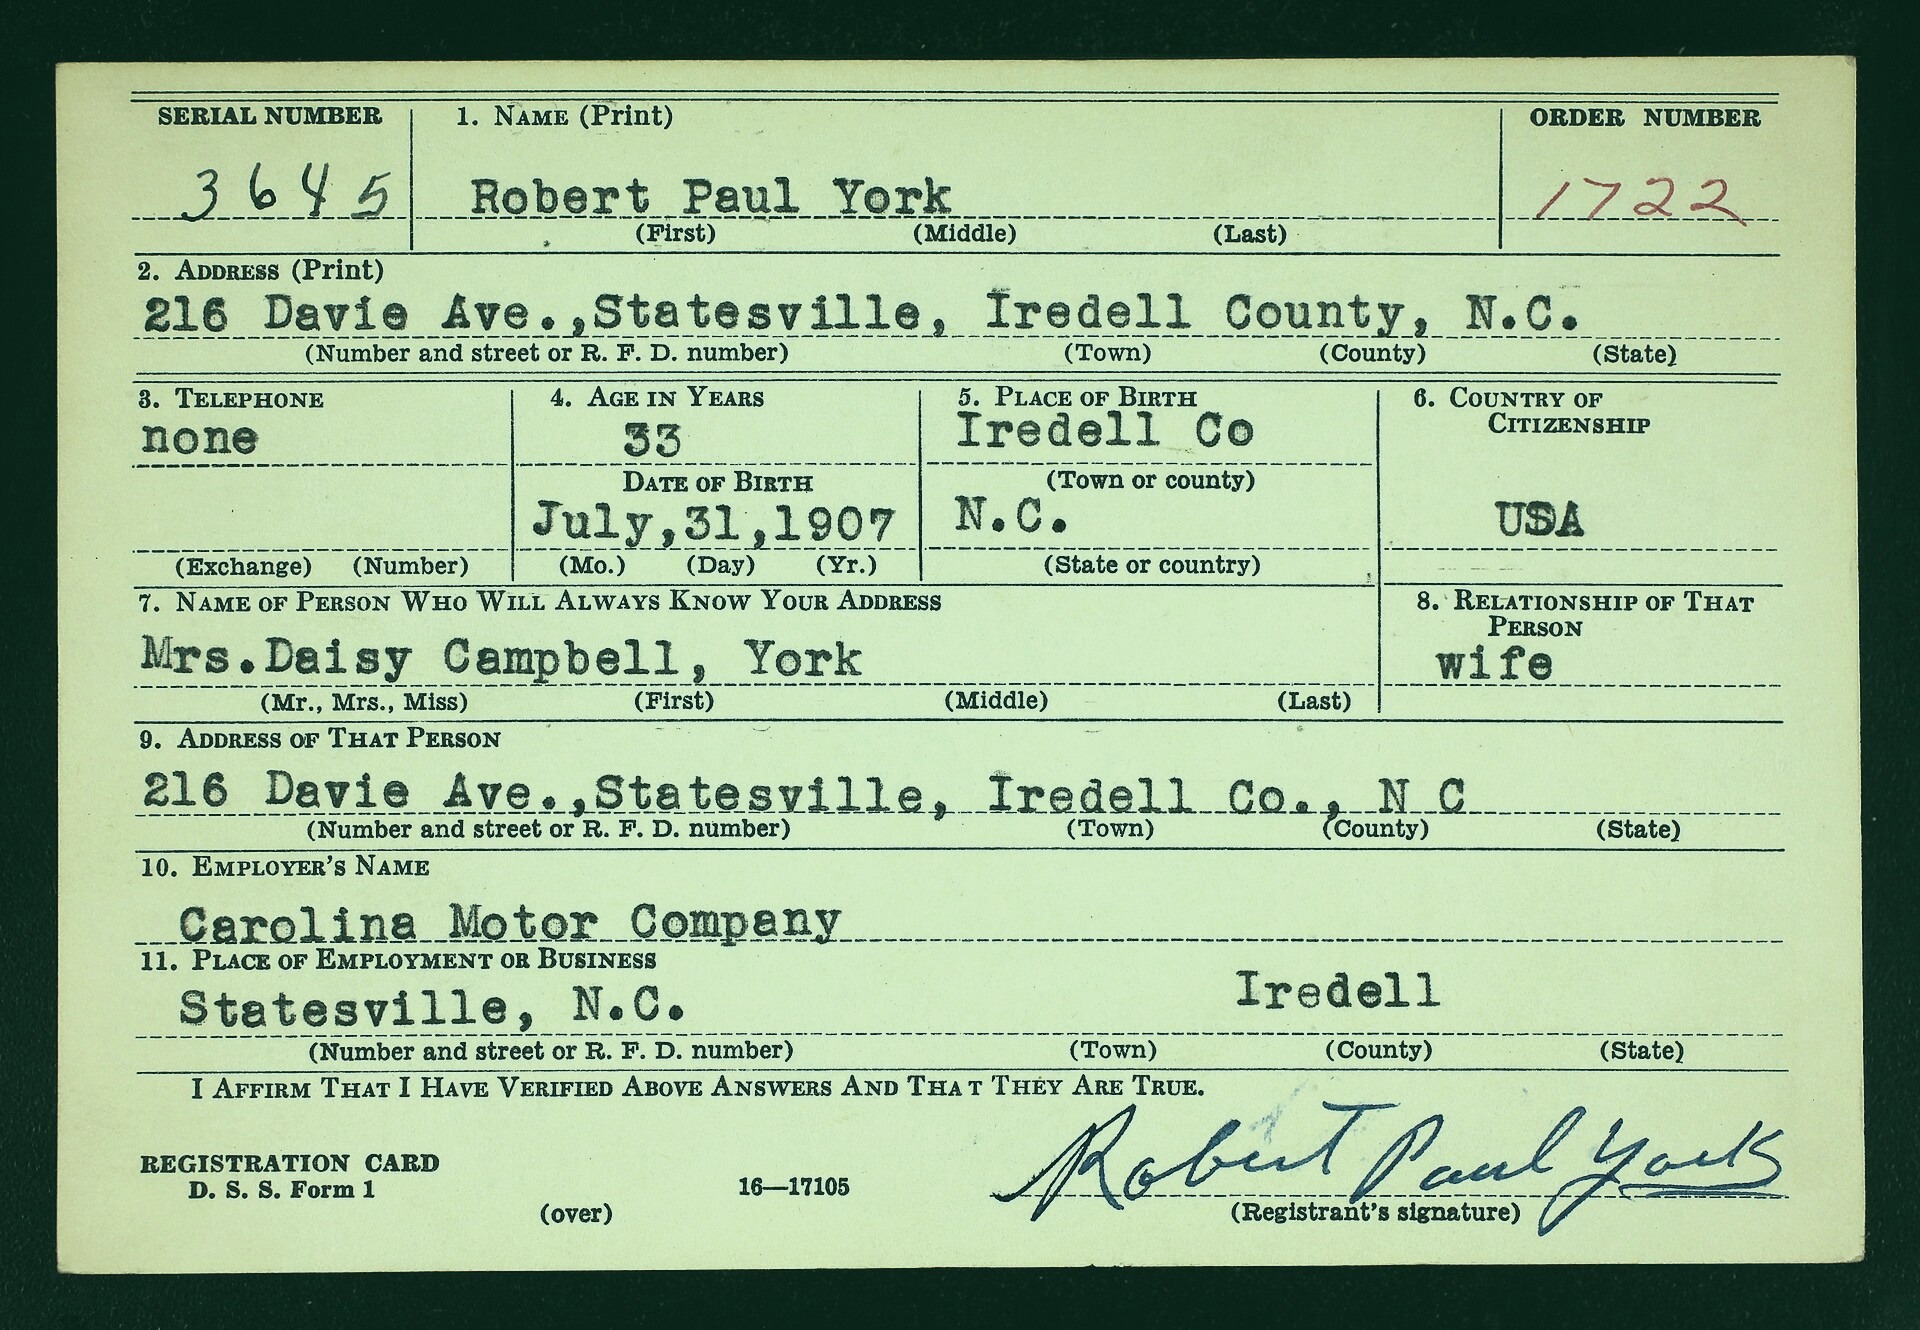 SERIAL NUMBER 1. NAME (Print) ORDER NUMBER
3645 Robert Paul York 1722
(First) (Middle) (Last)
2. ADDRESS (Print)
216 Davie Ave.,Statesville, Iredell County, N.C.
(Number and street or R. F. D. number) (Town) (County) (State)
3. TELEPHONE 4. AGE IN YEARS 5. PLACE OF BIRTH 6. COUNTRY OF
CITIZENSHIP
none 33 Iredell Co
DATE OF BIRTH (Town or county)
July,31,1907 N.C. USA
(Exchange) (Number) (Mo.) (Day) (Yr.) (State or country)
7. NAME OF PERSON WHO WILL ALWAYS KNOW YOUR ADDRESS 8. RELATIONSHIP OF THAT
PERSON
Mrs.Daisy Campbell, York wife
(Mr., Mrs., Miss) (First) (Middle) (Last)
9. ADDRESS OF THAT PERSON
216 Davie Ave.,Statesville, Iredell Co., N C
(Number and street or R. F. D. number) (Town) (County) (State)
10. EMPLOYER'S NAME
Carolina Motor Company
11. PLACE OF EMPLOYMENT OR BUSINESS
Statesville, N.C. Iredell
(Number and street or R. F. D. number) (Town) (County) (State)
I AFFIRM THAT I HAVE VERIFIED ABOVE ANSWERS AND THAT THEY ARE TRUE.
Robert Paul York
REGISTRATION CARD
D. S. S. Form 1 16—17105
(over) (Registrant's signature)